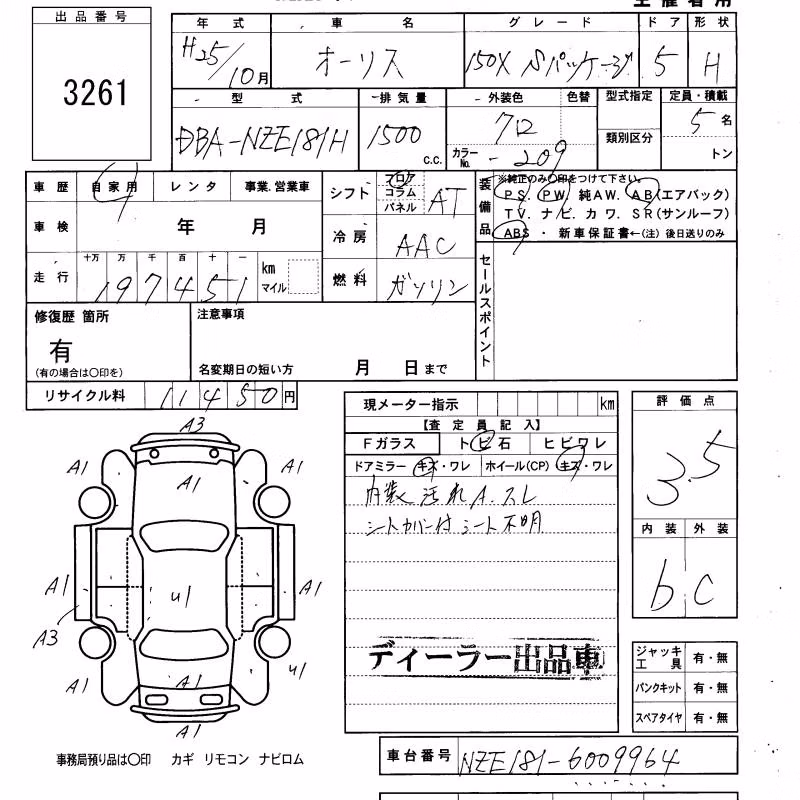 出品番号
3261
年式 車名 グレード ドア 形状
H25/10月 オーリス 150X Sパッケージ 5 H
型式 排気量 外装色 色替 型式指定 定員・積載
DBA-NZE181H 1500 c.c. クロ 類別区分 5名
カラーNo. -209 トン
車歴 自家用 レンタ 事業.営業車
車検 年 月
走行 十万 万 千 百 十 一 km マイル
197451
シフト フロア コラム パネル AT
冷房 AAC
燃料 ガソリン
装備品 ※純正のみ〇印をつけて下さい。
PS. PW. 純AW. AB(エアバック)
TV. ナビ. カワ. SR(サンルーフ)
ABS ・ 新車保証書←(注) 後日送りのみ
セールスポイント
修復歴 箇所 注意事項
有
(有の場合は〇印を) 名変期日の短い方 月 日まで
リサイクル料 11450円
現メーター指示 km
【査定員記入】
Fガラス トビ石 ヒビワレ
ドアミラー キズ・ワレ ホイール(CP) キズ・ワレ
内装 汚れ A.スレ
シートカバー付 シート不明
ディーラー出品車
評価点
3.5
内装 外装
b C
ジャッキ工具 有・無
パンクキット 有・無
スペアタイヤ 有・無
A3
A1 A1 A1
A1 U1 A1
A3
A1 A1 U1
A1
事務局預り品は〇印 カギ リモコン ナビロム
車台番号 NZE181-6009964